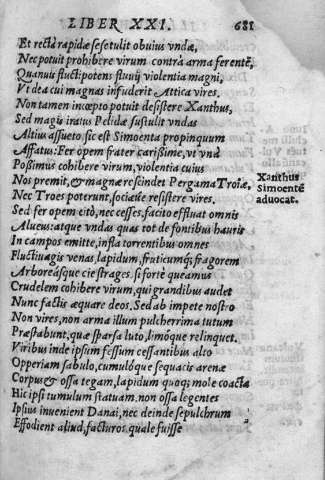 LIBER XXI. 681
Et rectà rapidæ sese tulit obuius vndæ,
Nec potuit prohibere virum contrà arma ferentē,
Quanuis fluctipotens fluuij violentia magni,
Vi dea cui magnas infuderit Attica vires.
Non tamen incœpto potuit desistere Xanthus,
Sed magis iratus Pelidæ sustulit vndas
Altius assueto: sic est Simoenta propinquum
Affatus: Fer opem frater carissime, vt vnà
Possimus cohibere virum, violentia cuius
Nos premit, & magnæ rescindet Pergama Troiæ,
Nec Troes poterunt, sociasue resistere vires.
Sed fer opem citò, nec cesses, facito effluat omnis
Alueus: atque vndas quas tot de fontibus hauris
In campos emitte, infla torrentibus omnes
Fluctiuagis venas, lapidum, fruticumq; fragorem
Arboreásque cie strages. si fortè queamus
Crudelem cohibere virum, qui grandibus audet
Nunc factis æquare deos. Sed ab impete nostro
Non vires, non arma illum pulcherrima tutum
Præstabunt, quæ sparsa luto, limóque relinquet.
Viribus inde ipsum fessum cessantibus alto
Opperiam sabulo, cumulóque sequacis arenæ
Corpus & ossa tegam, lapidum quoq; mole coacta
Hic ipsi tumulum statuam. non ossa legentes
Ipsius inuenient Danai, nec deinde sepulchrum
Effodient aliud, facturos quale fuisse
Xanthus
Simoentē
aduocat.